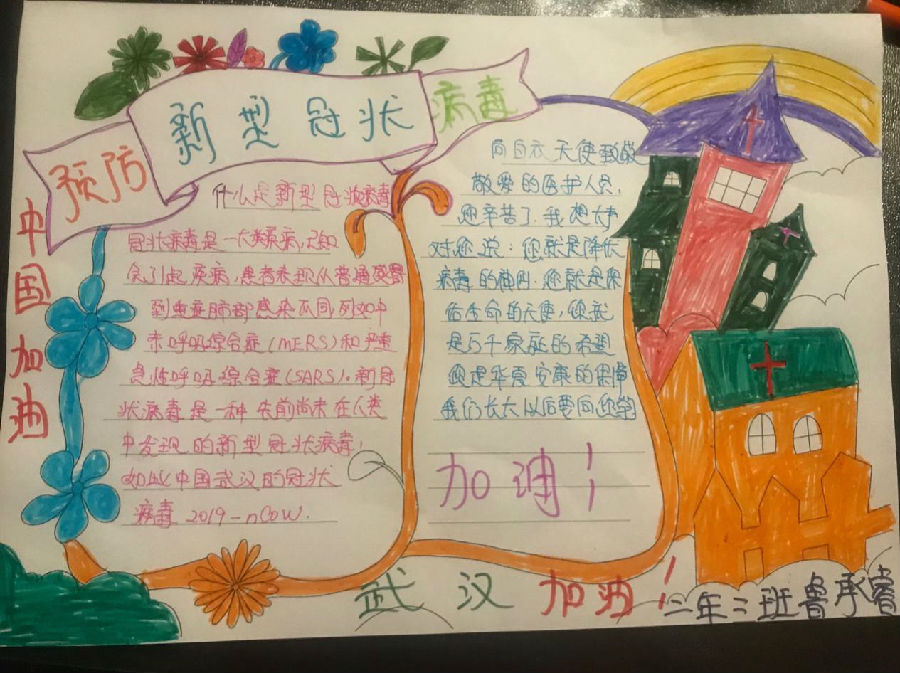 预防新型冠状病毒
中国加油
什么是新型冠状病毒
冠状病毒是一大类病毒,已知
会引起疾病,患者表现从普通感冒
到重症肺部感染不同,列如中
东呼吸综合症(MERS)和严重
急性呼吸综合症(SARS)。新冠
状病毒是一种先前尚未在人类
中发现的新型冠状病毒,
如此中国武汉的冠状
病毒 2019-nCoW.
向白衣天使致敬
敬爱的医护人员,
您辛苦了,我想大声
对您说:您就是降伏
病毒的神,您就是保
佑生命的天使,您就
是千家庭的希望
您是华夏安康的保障
我们长大以后要向您学
加油!
武汉加油!
二年二班鲁承睿